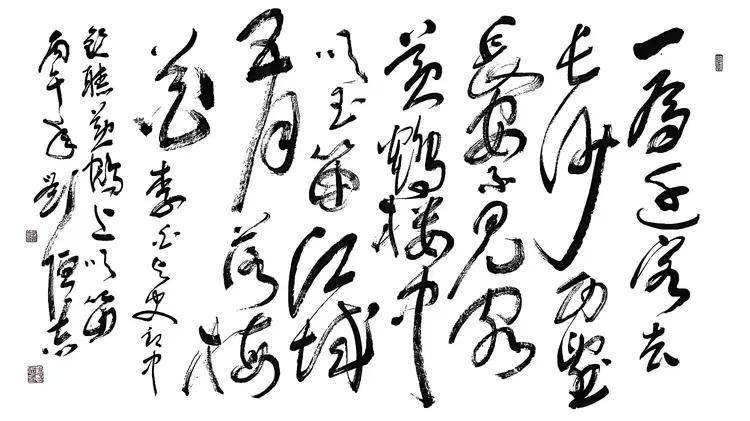 一為迁客去
长沙西望
长安不见家
黄鹤楼中
吹玉笛江城
五月落梅
花 李白与史郎中
钦聽黄鹤上吹笛
丙午年劉